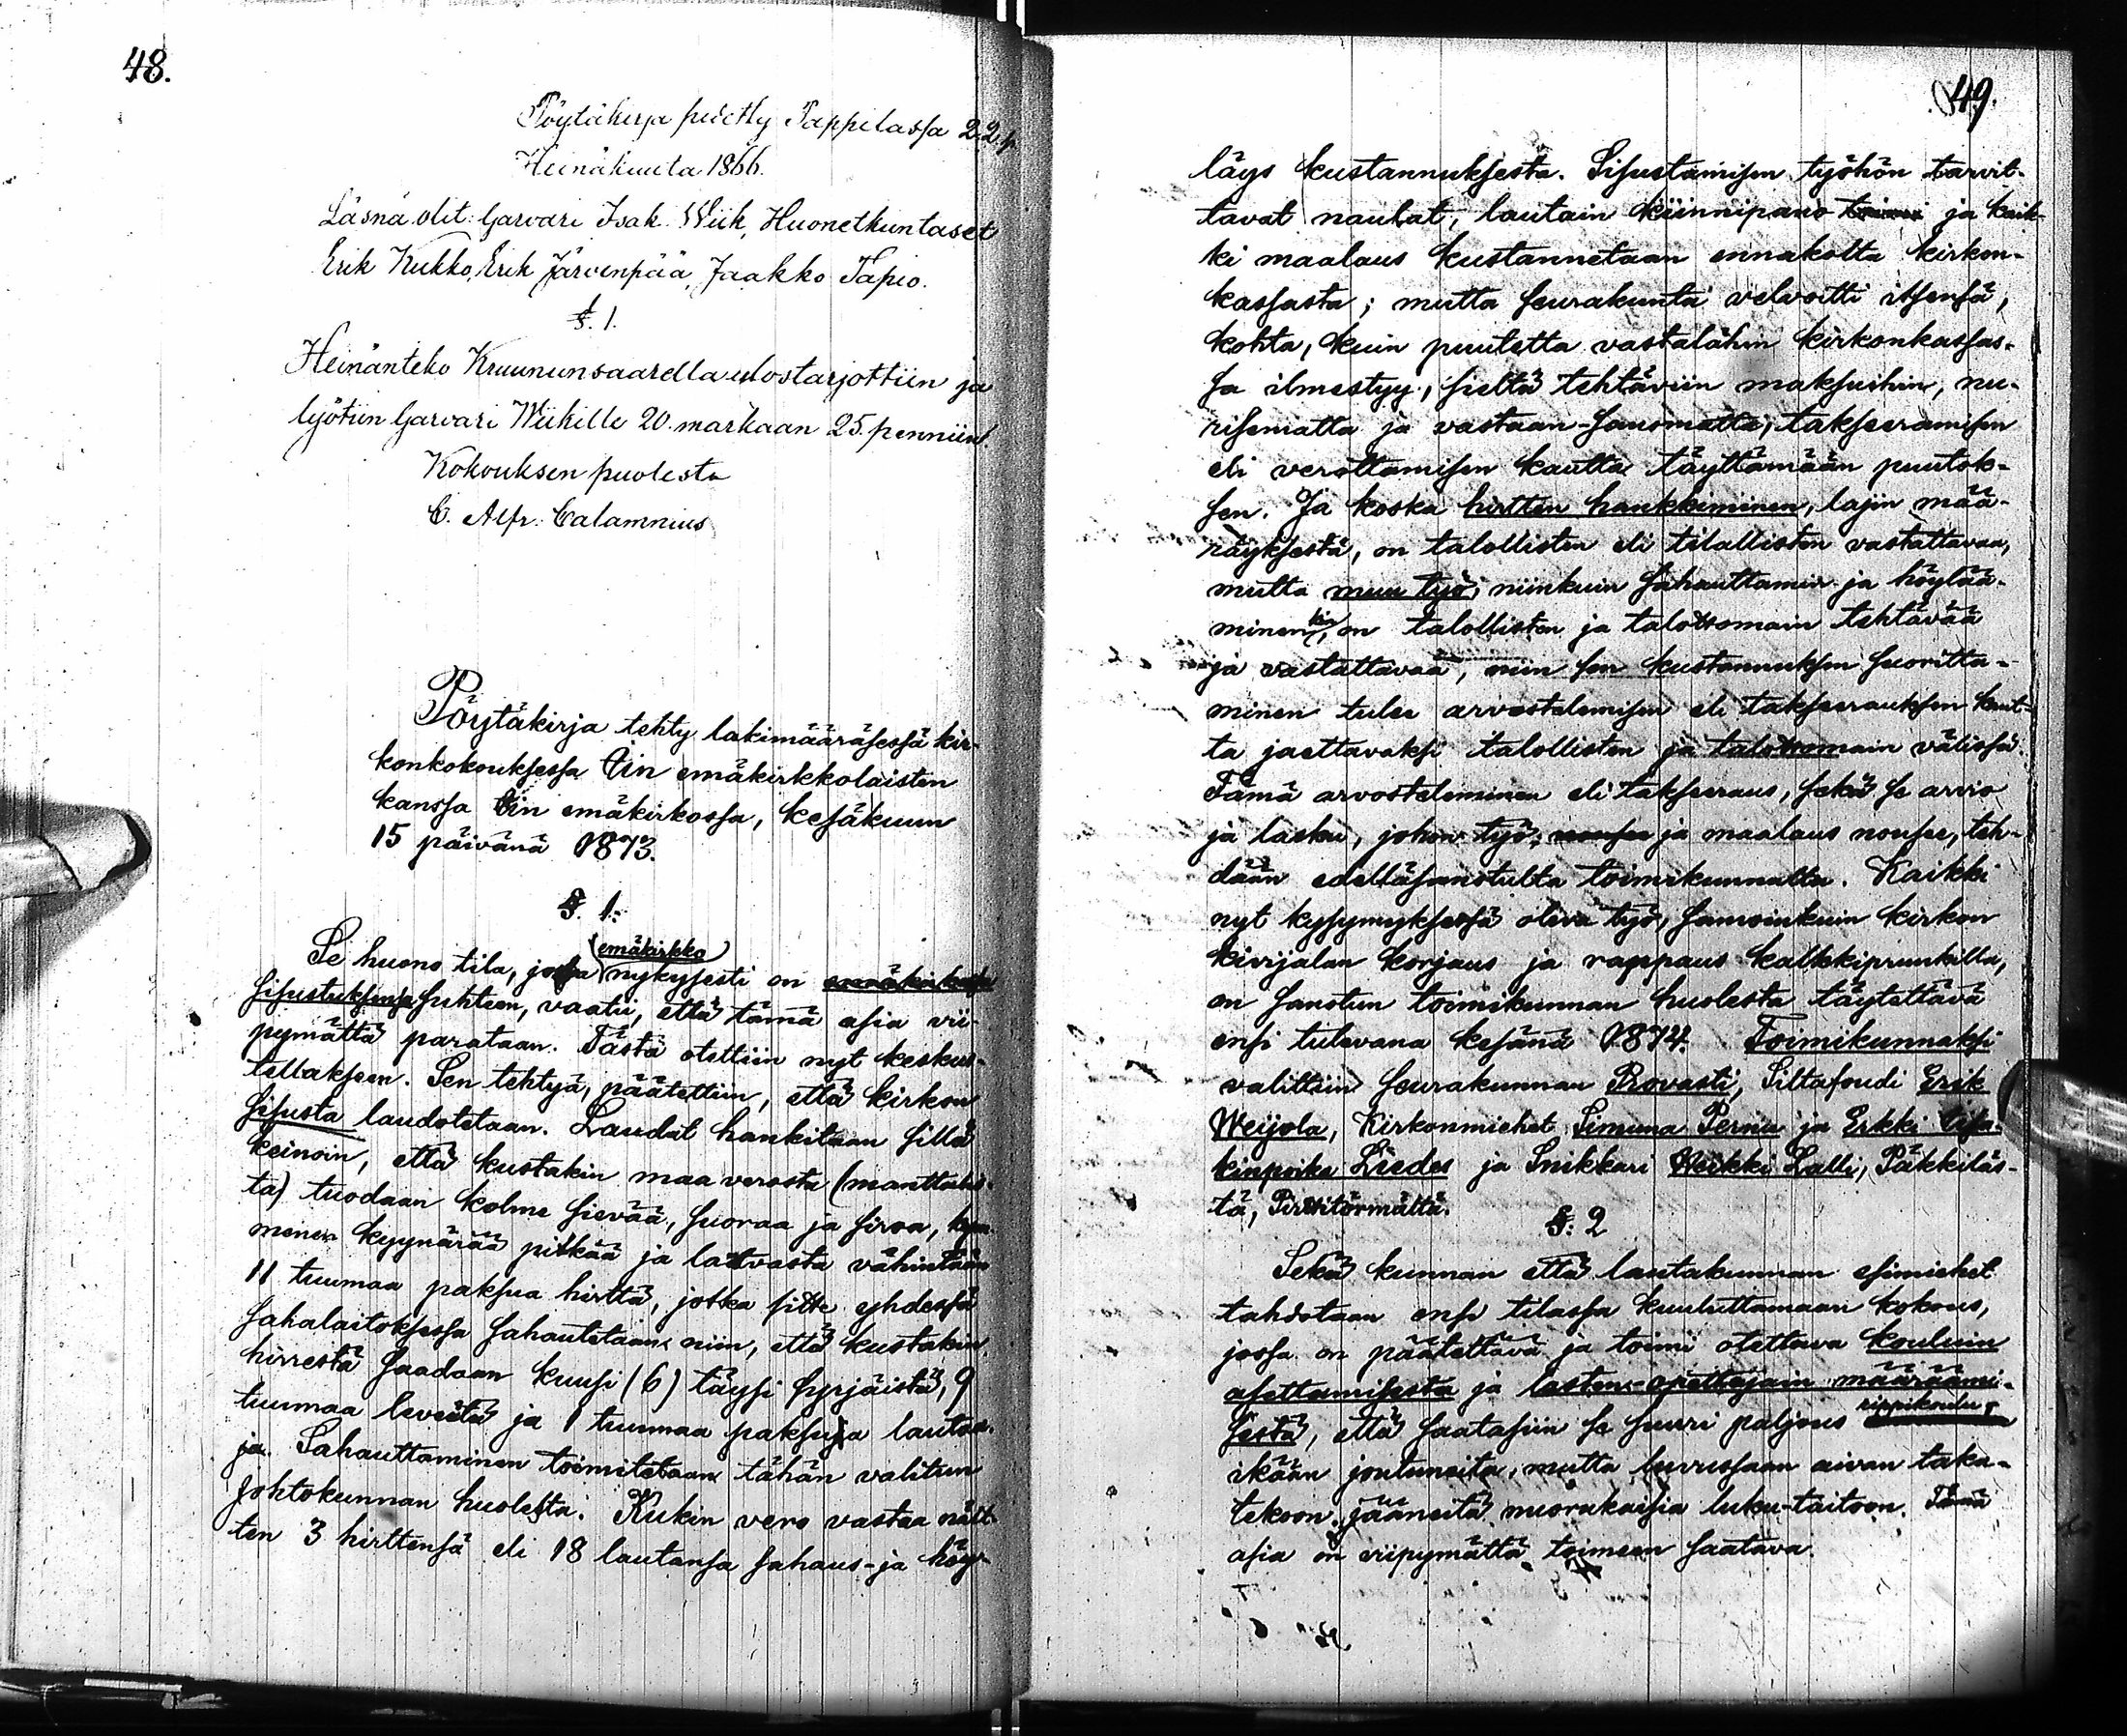 48.
Pöytäkirja pidetty Pappilassa 22 p
Heinäkuuta 1866.
Läsnä olit: Garvari Isak Wiik, Huonetkuntaset
Erik Kukko, Erik Järvenpää, Jaakko Tapio.
§. 1.
Heinänteko Kruununsaarella ulostarjottiin ja
lyötiin Garvari Wiikille 20 markaan 25 penniin.
Kokouksen puolesta
C. Alfr. Calamnius
Pöytäkirja tehty lakimääräsessä kir-
konkokouksessa Iin emäkirkkolaisten
kanssa Iin emäkirkossa, kesäkuun
15 päivänä 1873.
§. 1.
emäkirkko
Se huono tila, jossa nykysesti on emäkirkko
sisustuksensa suhteen, vaatii, että tämä asia vii-
pymättä parataan. Tästä otettiin nyt keskus-
tellakseen. Sen tehtyä, päätettiin, että kirkon
sisusta laudotetaan. Laudat hankitaan sillä
keinoin, että kustakin maa verosta (manttalis-
ta) tuodaan kolme sievää, suoraa ja siroa, kym-
menen kyynärää pitkää ja latvasta vähintään
11 tuumaa paksua hirttä, jotka sitte yhdessä
sahalaitoksessa sahautetaan niin, että kustakin
hirrestä saadaan kuusi (6) täysi syrjäistä, 9
tuumaa leveitä ja 1 tuumaa paksuja lautoa-
ja. Sahauttaminen toimitetaan tähän valitun
Johtokunnan huolesta. Kukin vero vastaa näit-
ten 3 hirttensä eli 18 lautansa sahaus- ja höy-
49.
läys kustannuksesta. Sisustamisen työhön tarvit-
tavat naulat, lautain kiinnipano toimi ja kaik-
ki maalaus kustannetaan ennakolta kirkon-
kassasta; mutta seurakunta velvoitti itsensä,
kohta, kuin puutetta vastalähin kirkonkassas-
sa ilmestyy, sieltä tehtäviin maksuihin, nu-
risematta ja vastaan-sanomatta, takseeramisen
eli verottamisen kautta täyttämään puutok-
sen. Ja koska hirtten hankkiminen, lajin mää-
räyksestä, on talollisten eli tilallisten vastattavaa,
mutta muu työ, niinkuin sahauttamin ja höylää-
minen kin, on talollisten ja talottomain tehtävää
ja vastattavaa, niin sen kustannuksen suoritta-
minen tulee arvostelemisen eli takseerauksen kaut-
ta jaettavaksi talollisten ja talottomain välissä.
Tämä arvosteleminen eli takseeraus, sekä se arvio
ja lasku, johon työ, nousee ja maalaus nousee, teh-
dään edelläsanotulta toimikunnalta. Kaikki
nyt kysymyksessä oleva työ, samoinkuin kirkon
kivijalan korjaus ja rappaus kalkkipruukilla,
on sanotun toimikunnan huolesta täytettävä
ensi tulevana kesänä 1874. Toimikunnaksi
valittiin seurakunnan Provasti, Siltafoudi Erik
Weijola, Kirkonmiehet Simuna Pernu ja Erkki Iisa-
kinpoika Liedes ja Snikkari Heikki Lalli, Päkkiläs-
tä, Pirttitörmältä.
§. 2
Sekä kunnan että lautakunnan esimiehet
tahdotaan ensi tilassa kuuluttamaan kokous,
jossa on päätettävä ja toimi otettava kouluin
asettamisesta ja lasten-opettajain määräämi-
sestä, että saatasiin se suuri paljous rippikoulu-
ikään joutuneita, mutta luvussaan aivan taka-
tekoon jääneitä nuorukaisia luku-taitoon. Tämä
asia on viipymättä toimeen saatava.